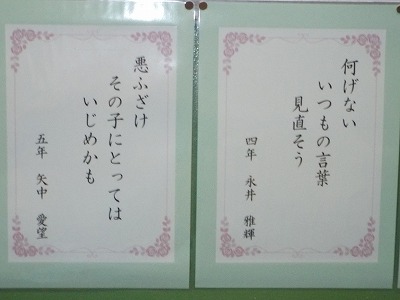 何げない
いつもの言葉
見直そう
四年 永井 雅輝
悪ふざけ
その子にとっては
いじめかも
五年 矢中 愛望